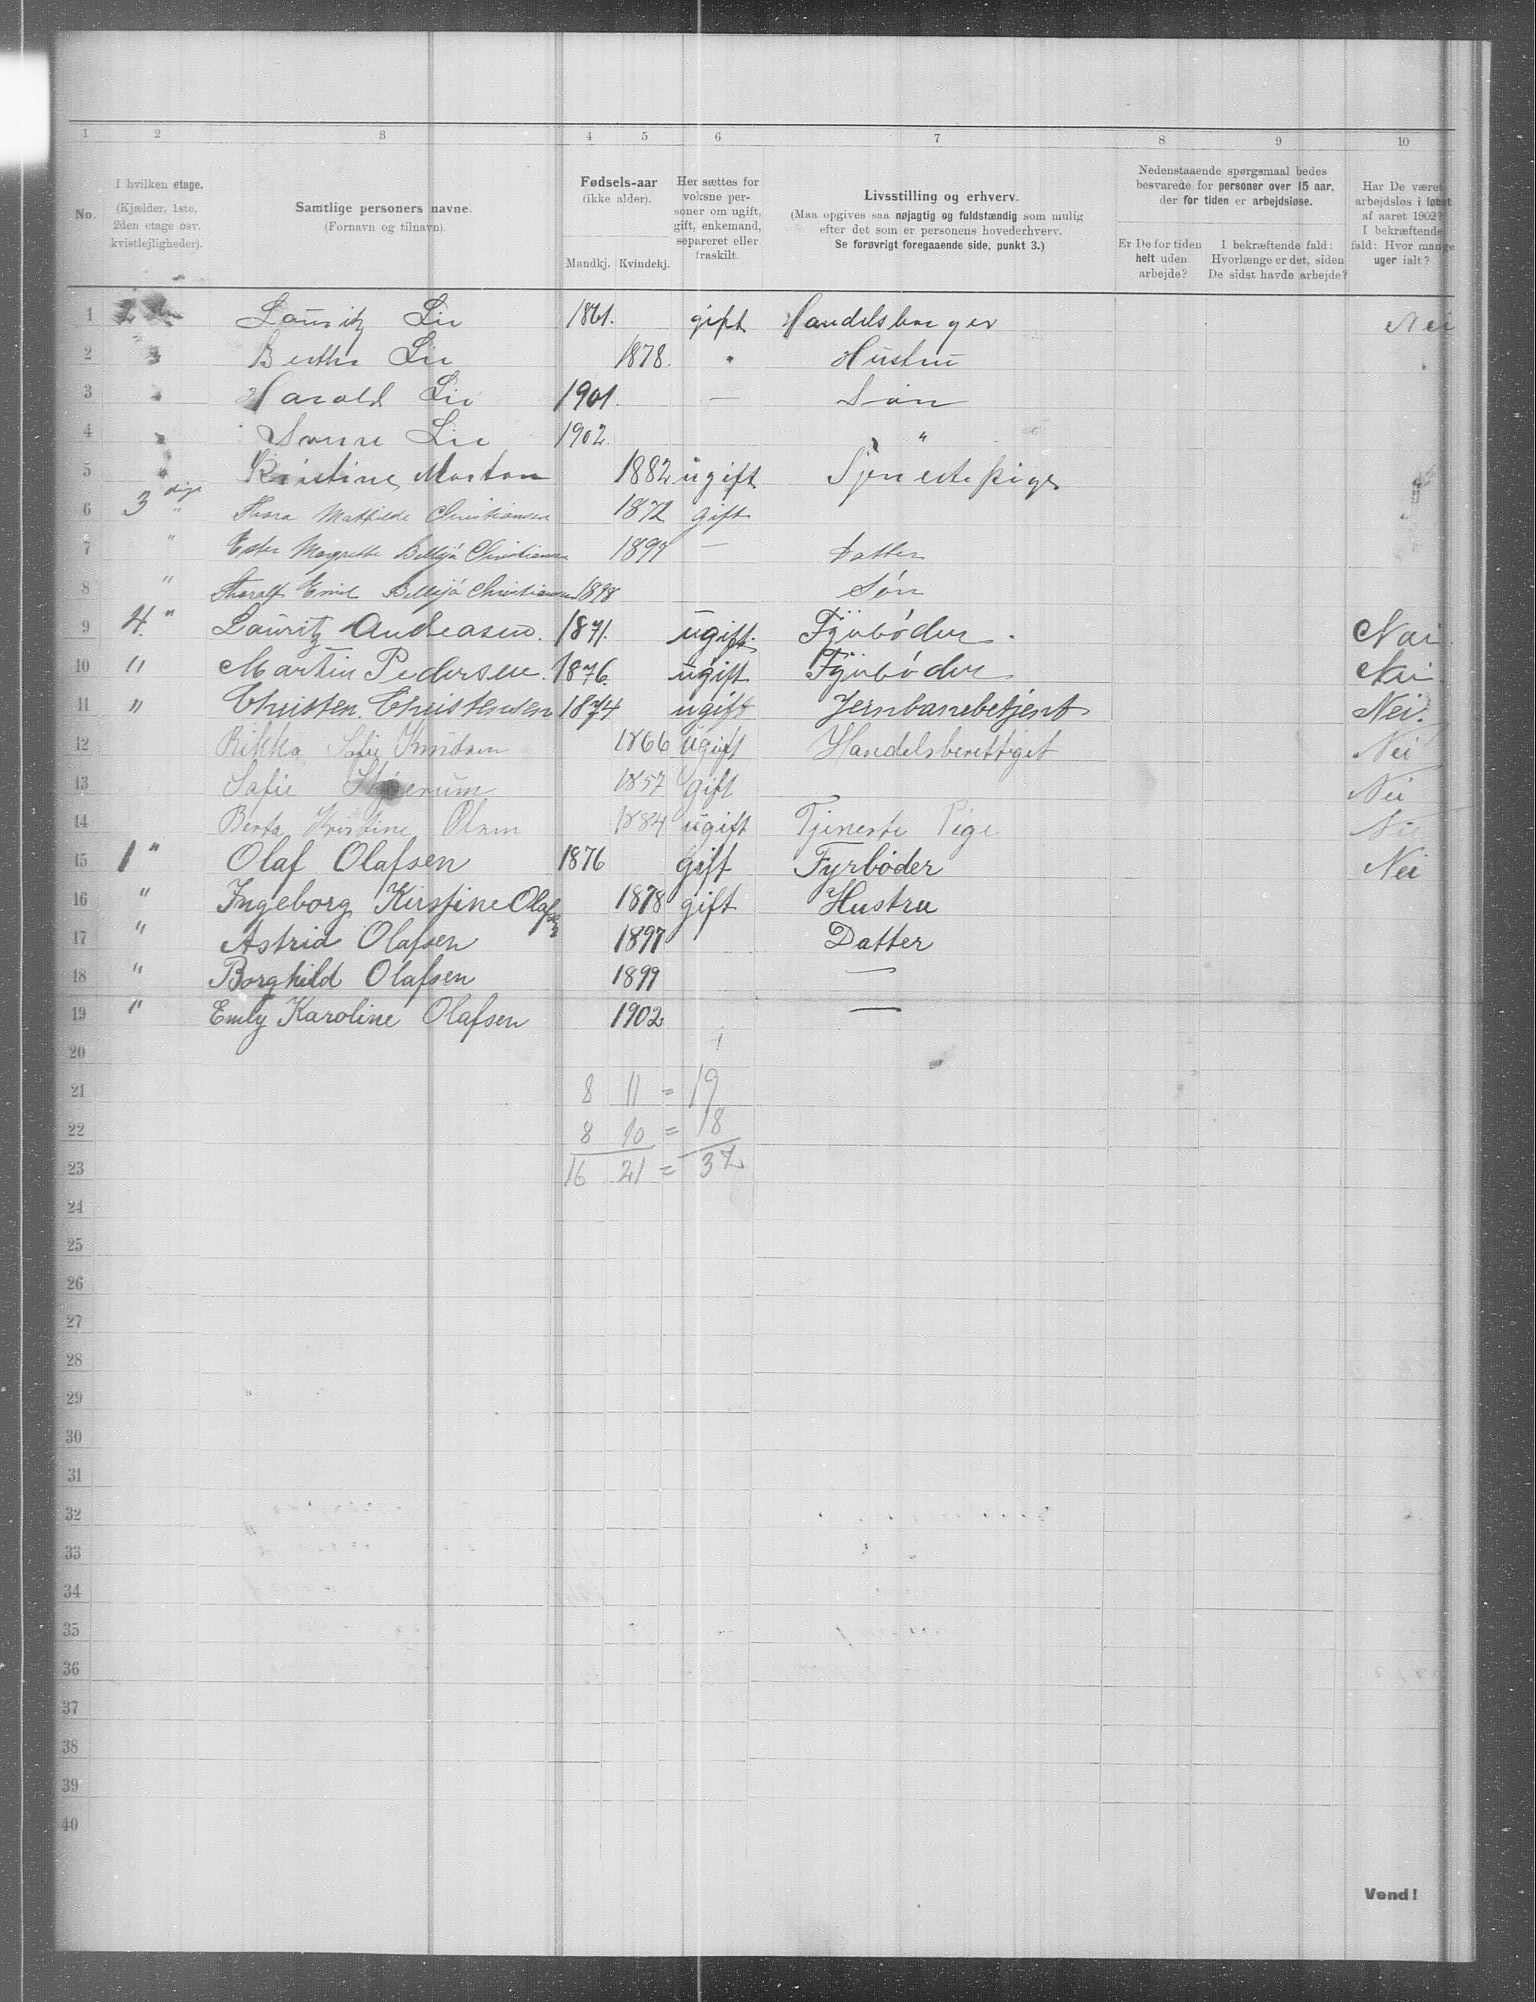 1 2 3 4 5 6 7 8 9 10
No.
I hvilken etage.
(Kjælder, 1ste,
2den etage osv.
kvistlejligheder).
Samtlige personers navne.
(Fornavn og tilnavn).
Fødsels-aar
(ikke alder).
Mandkj. Kvindekj.
Her sættes for
voksne per-
soner om ugift,
gift, enkemand,
separeret eller
fraskilt.
Livsstilling og erhverv.
(Maa opgives saa nøjagtig og fuldstændig som mulig
efter det som er personens hovederhverv.
Se forøvrigt foregaaende side, punkt 3.)
Nedenstaaende spørgsmaal bedes
besvarede for personer over 15 aar,
der for tiden er arbejdsløse.
Er De for tiden
helt uden
arbejde?
I bekræftende fald:
Hvorlænge er det, siden
De sidst havde arbejde?
Har De været
arbejdsløs i løbet
af aaret 1902?
I bekræftende
fald: Hvor mange
uger ialt?
1 2 den Lauritz Lie 1861. gift Handelsborger Nei
2 " Berthe Lie 1878. " Hustru
3 " Harald Lie 1901. — Søn
4 " Lie 1902. "
5 " Kristine Morton 1882 ugift Tjenestepige
6 3 die " Thora Mathilde Christiansen 1872 gift
7 " Ester Margrethe Christiansen 1897 — Datter
8 " Thoralf Emil Christiansen 1898 Søn
9 4. " Lauritz Andreasen. 1871. ugift. Fyrbøder. Nei.
10 " Martin Pedersen. 1876. ugift Fyrbøder Nei
11 " Christen Christensen 1874 ugift Jernbanebetjent Nei.
12 Rikka Sofie 1866 ugift Handelsberettiget Nei
13 Sofie 1857 gift Nei
14 Berta Kristine Olsen 1884 ugift Tjeneste Pige Nei
15 1 " Olaf Olafsen 1876 gift Fyrbøder Nei
16 " Ingeborg Kirstine Olafsen 1878 gift Hustru
17 " Astrid Olafsen 1897 Datter
18 " Borghild Olafsen 1899 —
19 " Emly Karoline Olafsen 1902 —
20
21 8 11 = 19
22 8 10 = 18
23 16 21 = 37
24
25
26
27
28
29
30
31
32
33
34
35
36
37
38
39
40
Vend!